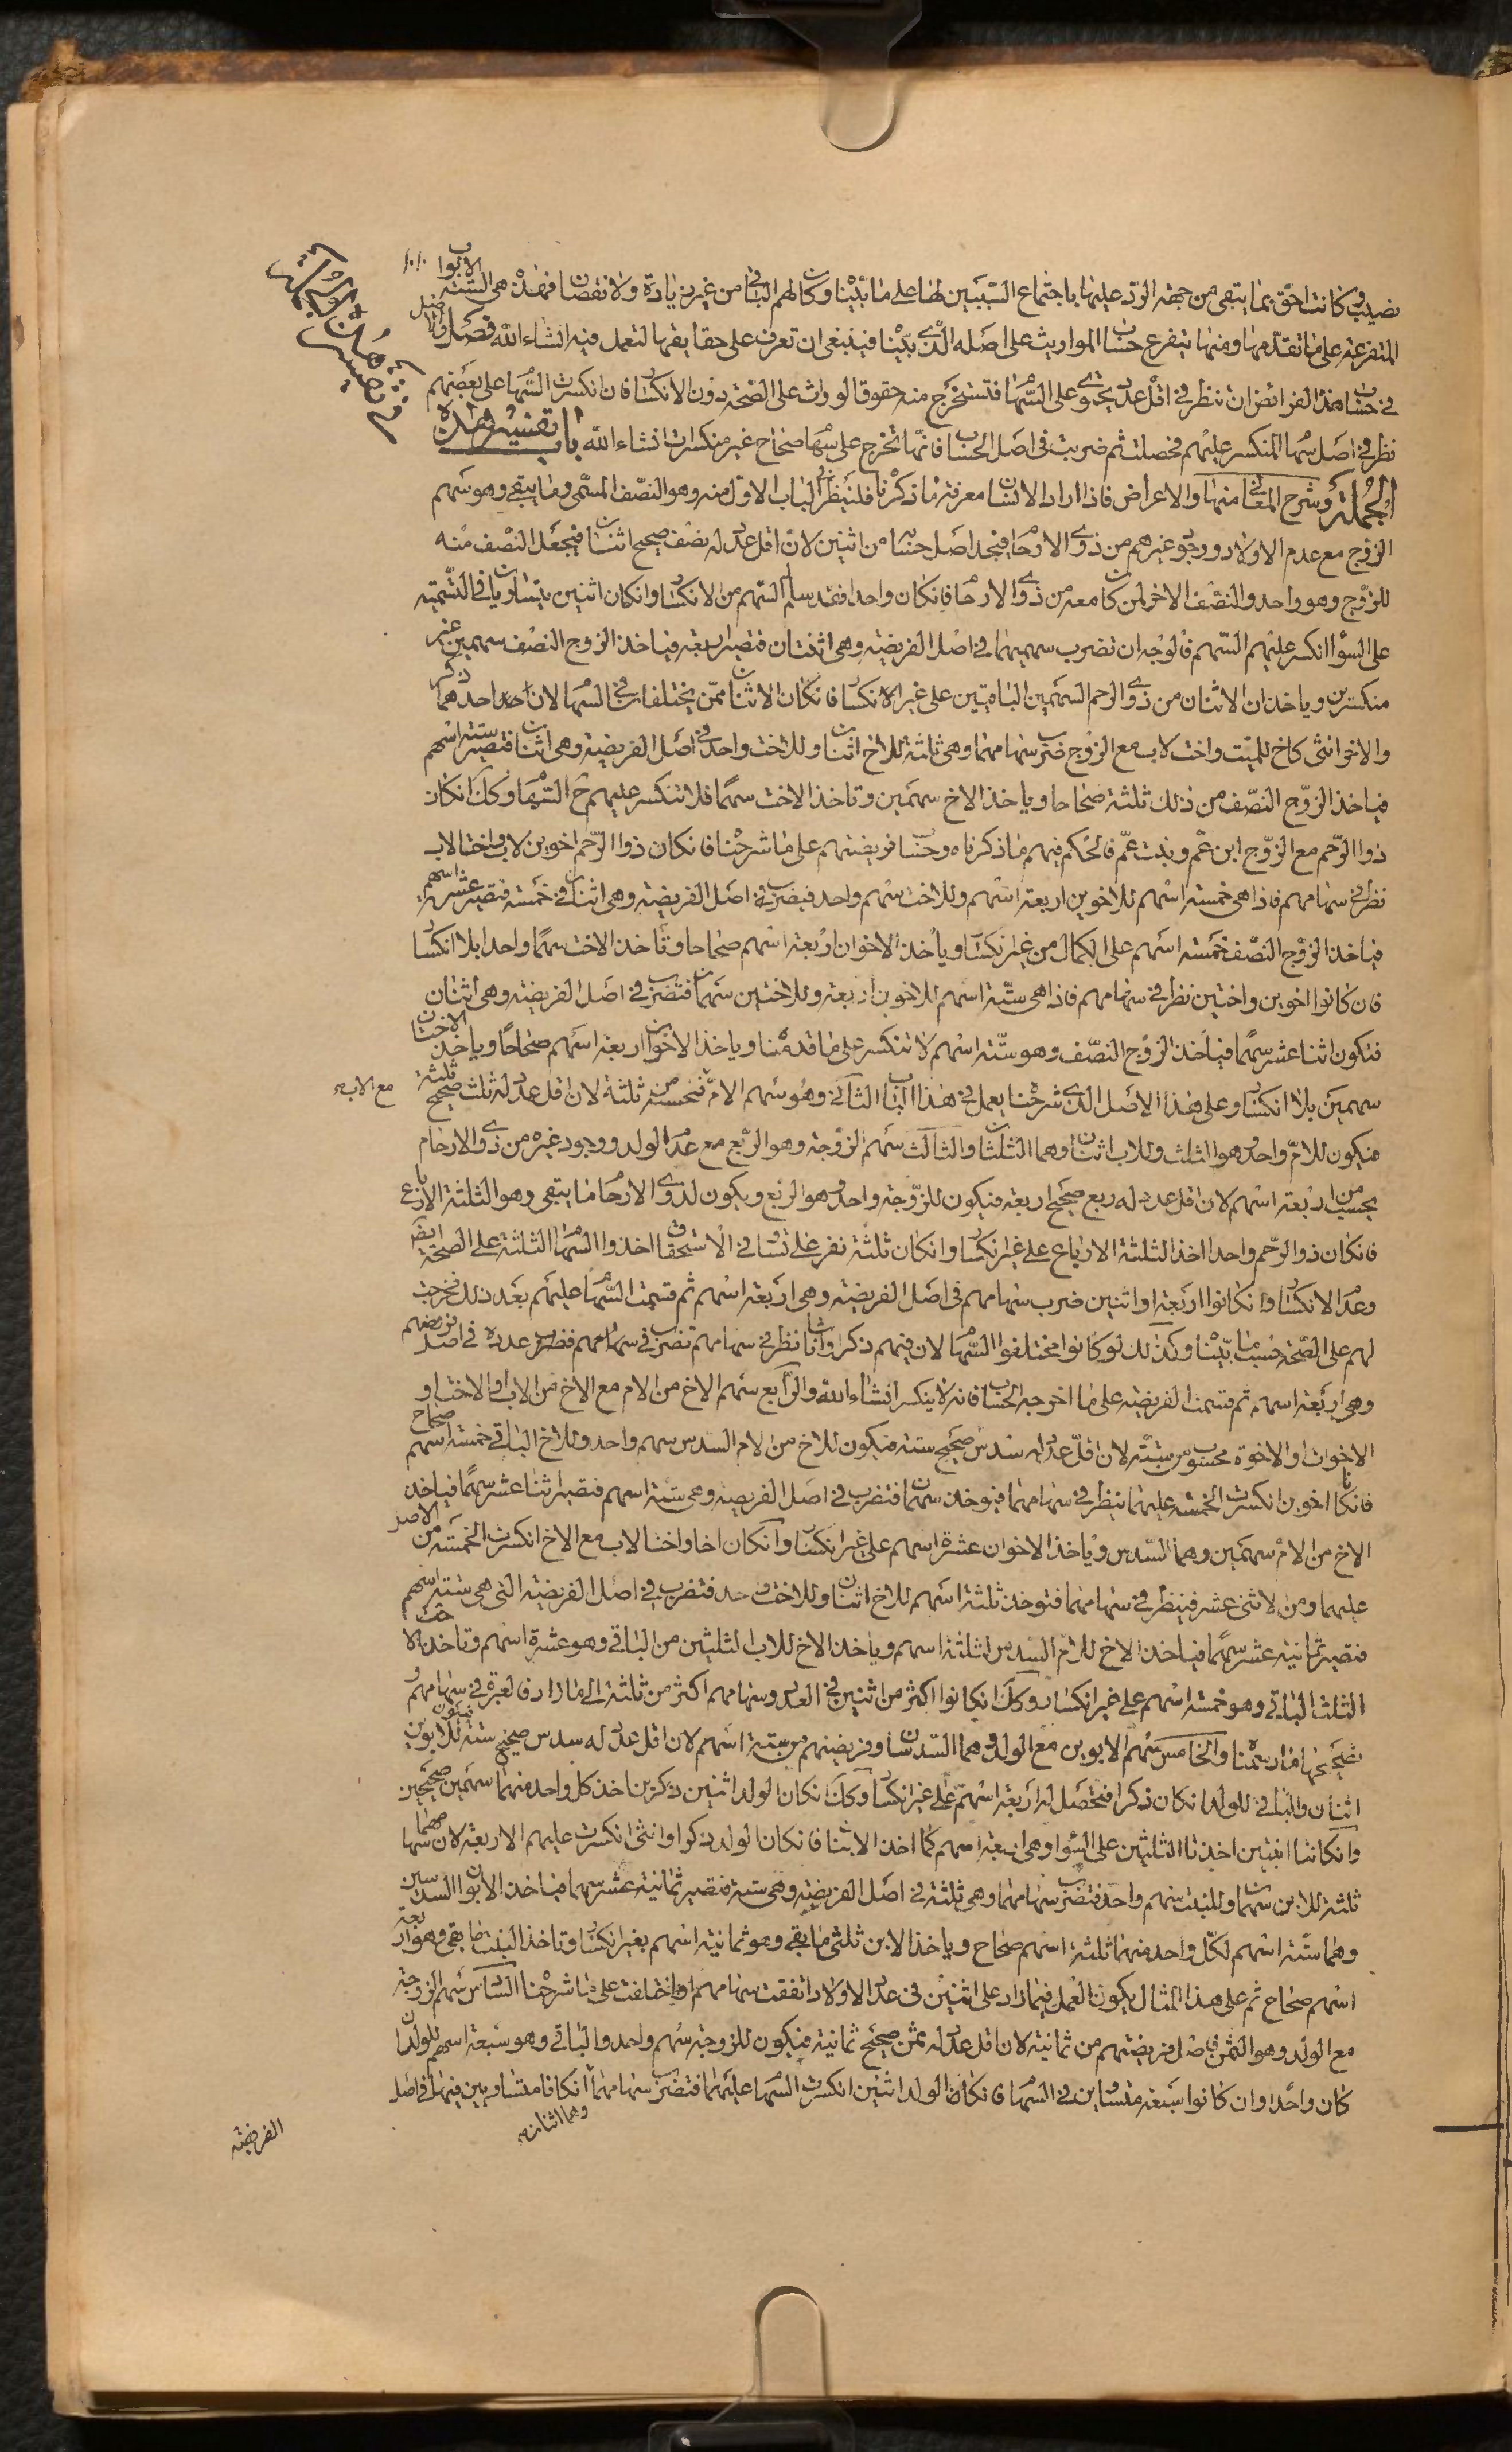 نصيب وكانت احق بما يبقى من جهة الرد عليها باجتماع السببين لها على ما بيّنا وكان لهم الباقى من غير زيادة ولا نقصان فهذه هى الستة الابواب
المتفرعة على ما تقدمها ومنها يتفرع حساب المواريث على اصله الذى بيّنا فينبغى ان تعرف على حقايقها لتعمل فيه انشاء الله فصل والاصل
فى حساب هذه الفرائض ان تنظر فى اقل عدد يحتوى على السهام فتستخرج منه حقوق الوراث على الصحة دون الانكسار فان انكسرت السهام على بعضهم
نظر فى اصل سهام المنكسر عليهم فحصلت ثم ضربت فى اصل الحساب فانها تخرج على سهام صحاح غير منكسرات انشاء الله باب تفسير هذه
الجملة وشرح المعانى منها والاعراض فاذا اراد الانسان معرفة ما ذكرنا فلينظر فى الباب الاول منه وهو النصف المسمى وما يبقى وهو سهم
الزوج مع عدم الاولاد ووجود غيرهم من ذوى الارحام فيجد اصل حسابه من اثنين لان اقل عدد له نصف صحيح اثنان فيجعل النصف منه
للزوج وهو واحد والنصف الاخر لمن كان معه من ذوى الارحام فان كان واحدا فقد سلم السهم من الانكسار وان كان اثنين يتساويان فى التسمية
على السواء انكسر عليهم السهم فالوجه ان تضرب سهميهما فى اصل الفريضة وهى اثنتان فتصير اربعة فياخذ الزوج النصف سهمين غير
منكسرين وياخذان الاثنان من ذوى الرحم السهمين الباقيين على غير الانكسار فان كان الاثنان ممن يختلفان فى السهام لان احدهما ذكر
والاخر انثى كاخ للميت واخت لاب مع الزوج ضرب سهامهما وهى ثلثة للاخ اثنان وللاخت واحد فى اصل الفريضة وهى اثنان فتصير ستة اسهم
فياخذ الزوج النصف من ذلك ثلثة صحاحا وياخذ الاخ سهمين وتاخذ الاخت سهما فلا تنكسر عليهم ح السهام وكك ان كان
ذوا الرحم مع الزوج ابن عم وبنت عم فالحكم فيهم ما ذكرناه وحساب فريضتهم على ما شرحنا فان كان ذوا الرحم اخوين لاب واختا لاب
نظر فى سهامهم فاذا هى خمسة اسهم للاخوين اربعة اسهم وللاخت سهم واحد فيضرب فى اصل الفريضة وهى اثنان فى خمسة فتصير عشرة اسهم
فياخذ الزوج النصف خمسة اسهم على الكمال من غير انكسار وياخذ الاخوان اربعة اسهم صحاحا وتاخذ الاخت سهما واحدا بلا انكسار
فان كانوا اخوين واختين نظر فى سهامهم فاذا هى ستة اسهم للاخوين اربعة وللاختين سهمان فتضرب فى اصل الفريضة وهى اثنان
فتكون اثنا عشر سهما فياخذ الزوج النصف وهو ستة اسهم لا تنكسر على ما قدمنا وياخذ الاخوان اربعة اسهم صحاحا وياخذ الاختان
سهمين بلا انكسار وعلى هذا الاصل الذى شرحنا يعمل فى هذا الباب الثانى وهو سهم الام فتحسبه من ثلثة لان اقل عدد له ثلث صحيح ثلثة
مع الاب
فيكون للام واحد هو الثلث وللاب اثنان وهما الثلثان والثالث سهم الزوجة وهو الربع مع عدم الولد ووجود غيره من ذوى الارحام
يحسب من اربعة اسهم لان اقل عدد له ربع صحيح اربعة فيكون للزوجة واحد وهو الربع ويكون لذوى الارحام ما يبقى وهو الثلثة الارباع
فان كان ذو الرحم واحدا اخذ الثلثة الارباع على غير انكسار وان كان ثلثة نفر على تساو فى الاستحقاق اخذوا السهام الثلثة على الصحة ايضا
وعدم الانكسار وان كانوا اربعة او اثنين ضرب سهامهم فى اصل الفريضة وهى اربعة اسهم ثم قسمت السهام عليهم بعد ذلك فخرجت
لهم على الصحة حسب ما بيّنا وكذلك لو كانوا مختلفوا السهام لان فيهم ذكرا واناثا نظر فى سهامهم عدده فى اصل فريضتهم
وهى اربعة اسهم ثم قسمت الفريضة على ما اخرجه الحساب فانه لا ينكسر انشاء الله والرابع سهم الاخ من الام مع الاخ من الاب والاخت او
الاخوات او الاخوة محسوب من ستة لان اقل عدد له سدس صحيح ستة فيكون للاخ من الام السدس سهم واحد وللاخ الباقى خمسة اسهم صحاح
فان كانا اخوين انكسرت الخمسة عليهما ينظر فى سهامهما فيوخذ سهمان فتضرب فى اصل الفريضة وهى ستة اسهم فتصير اثنا عشر سهما فياخذ
الاخ من الام سهمين وهما السدس وياخذ الاخوان عشرة اسهم على غير انكسار وان كان اخا واختا لاب مع الاخ انكسرت الخمسة من الاصل
عليهما ومن الاثنى عشر فينظر فى سهامهما فتوخذ ثلثة اسهم للاخ اثنان وللاخت واحد فتضرب فى اصل الفريضة التى هى ستة اسهم
فتصير ثمانية عشر سهما فياخذ الاخ للام السدس ثلثة اسهم وياخذ الاخ للاب الثلثين من الباقى وهو عشرة اسهم وتاخذ الاخت
الثلث الباقى وهو خمسة اسهم على غير انكسار وكك ان كانوا اكثر من اثنين فى العدد وسهامهم اكثر من ثلثة الى ما زاد فالعبرة فى سهامهم و
تصحيحها ما رسمنا والخامس سهم الابوين مع الولد وهما السدسان وفريضتهم من ستة اسهم لان اقل عدد له سدس صحيح ستة فيكون للابوين
اثنان والباقى للولد ان كان ذكرا فتحصل له اربعة اسهم على غير انكسار وكك ان كان الولد اثنين ذكرين اخذ كل واحد منهما سهمين صحيحين
وان كانتا ابنتين اخذتا الثلثين على السواء وهى اربعة اسهم كما اخذ الابنان فان كان الولد ذكرا وانثى انكسرت عليهم الاربعة لان سهامهما
ثلثة للابن سهمان وللبنت سهم واحد فتضرب سهامهما وهى ثلثة فى اصل الفريضة وهى ستة فتصير ثمانية عشر سهما فياخذ الابوان السدسين
وهما ستة اسهم لكل واحد منهما ثلثة اسهم صحاح وياخذ الابن ثلثى ما بقى وهو ثمانية اسهم بغير انكسار وتاخذ البنت ما بقى وهو اربعة
اسهم صحاح ثم على هذا المثال يكون العمل فيما زاد على اثنين فى عدد الاولاد اتفقت سهامهم او اختلفت على ما شرحنا السادس سهم الزوجة
مع الولد وهو الثمن فاصل فريضتهم من ثمانية لان اقل عدد له ثمن صحيح ثمانية فيكون للزوجة سهم واحد والباقى وهو سبعة اسهم للولد ان
كان واحدا وان كانوا سبعة متساوين فى السهام فان كان الولد اثنين انكسرت السهام عليهما فتضرب سهامهما ان كانا متساويين فيها فى اصل
وهما اثنان
الفريضة